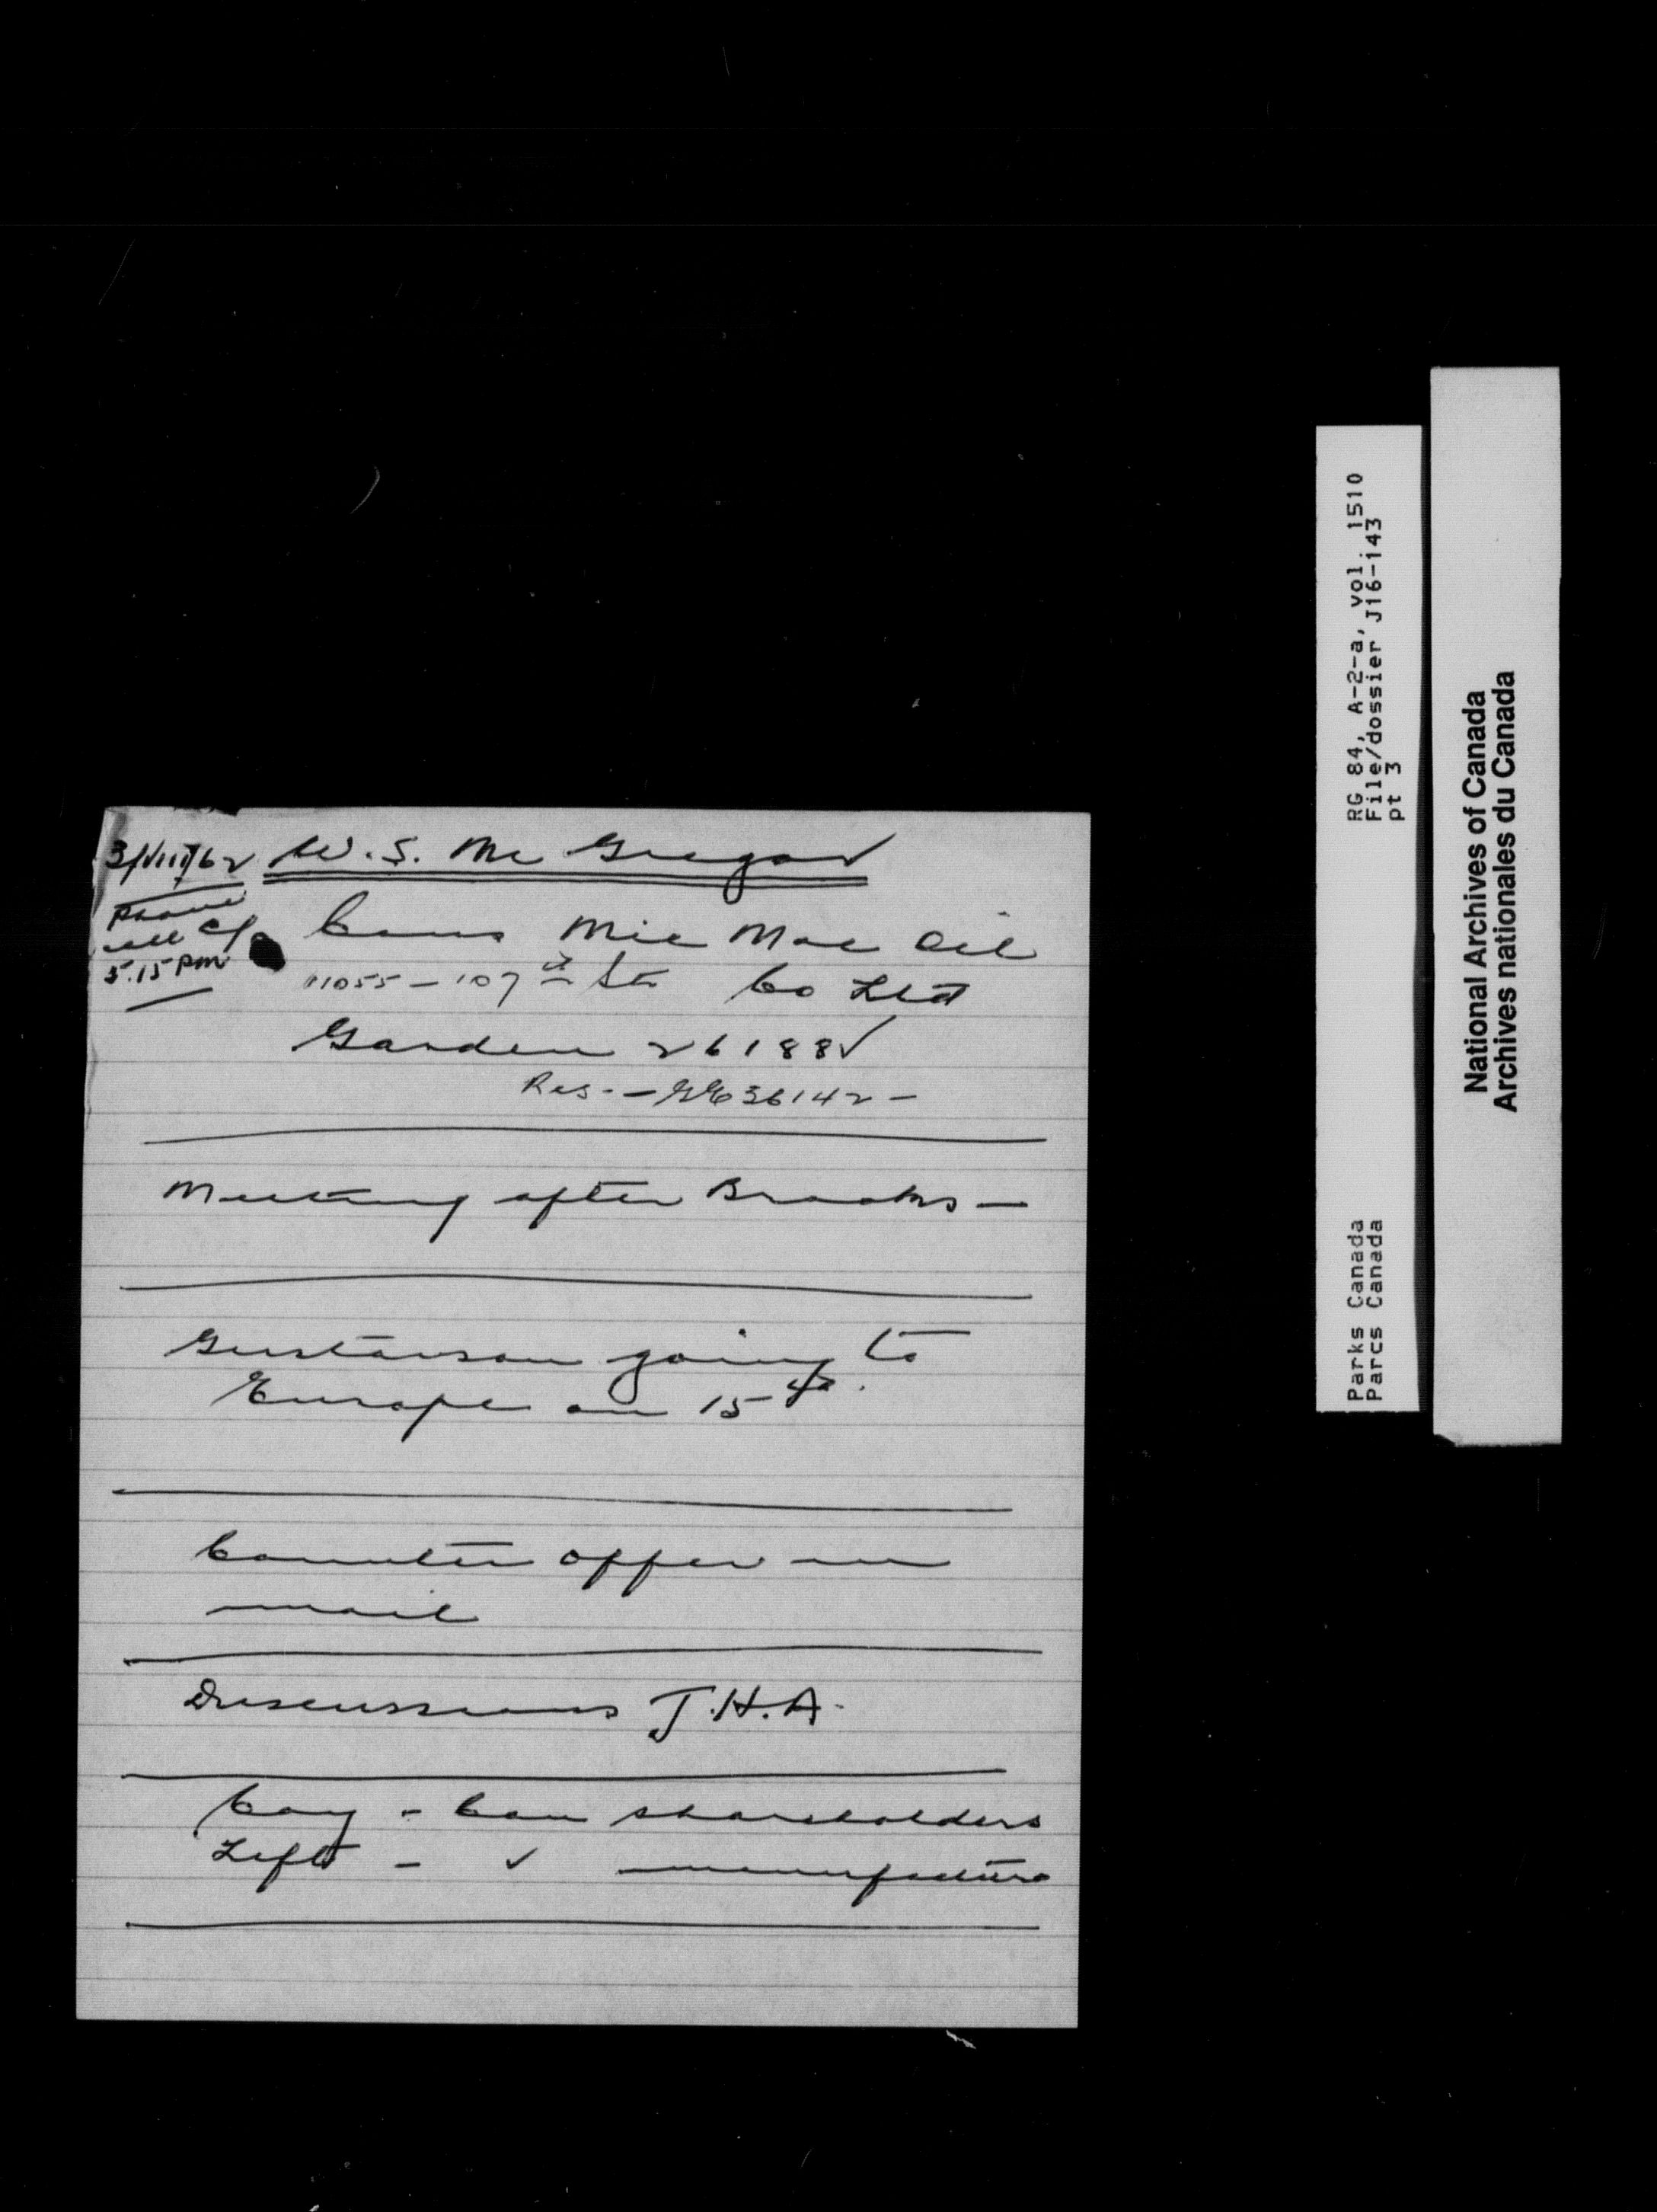 3/VIII/62 W. S. Mc Gregor
Phone
call c/o Cans Mic Mac Oil
5.15 pm 11055 - 107th St Co Ltd
Garden 26188
Res. - GE 36142 -
Meeting after Brooks -
Gustavson going to
Europe on 15th.
Counter offer in
mail
Discussions J.H.A.
Coy - Can shareholders
Lifts - ✓ manufacture
RG 84, A-2-a, vol. 1510
File/dossier J16-143
pt 3
Parks Canada
Parcs Canada
National Archives of Canada
Archives nationales du Canada